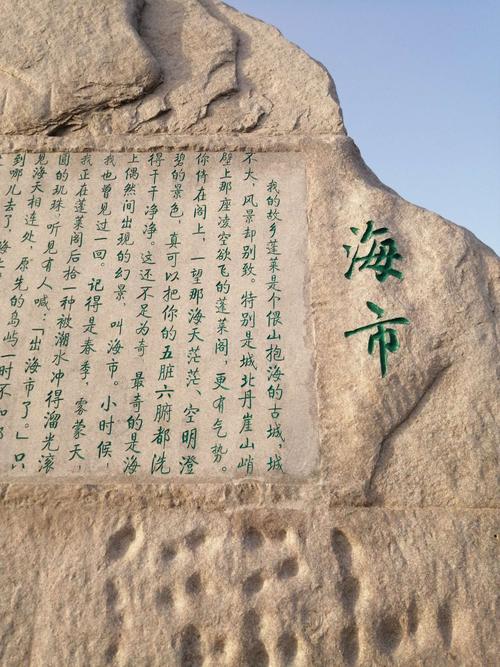 海市
我的故乡蓬莱是个偎山抱海的古城，城
不大，风景却别致。特别是城北丹崖山峭
壁上那座凌空欲飞的蓬莱阁，更有气势。
你倚在阁上，一望那海天茫茫、空明澄
碧的景色，真可以把你的五脏六腑都洗
得干干净净。这还不足为奇，最奇的是海
上偶然间出现的幻景，叫海市。小时候，
我也曾见过一回。记得是春季，雾蒙天，
我正在蓬莱阁后拾一种被潮水冲得溜光滚
圆的玑珠，听见有人喊：“出海市了。”只
见海天相连处，原先的岛屿一时不知
到哪儿去了，海